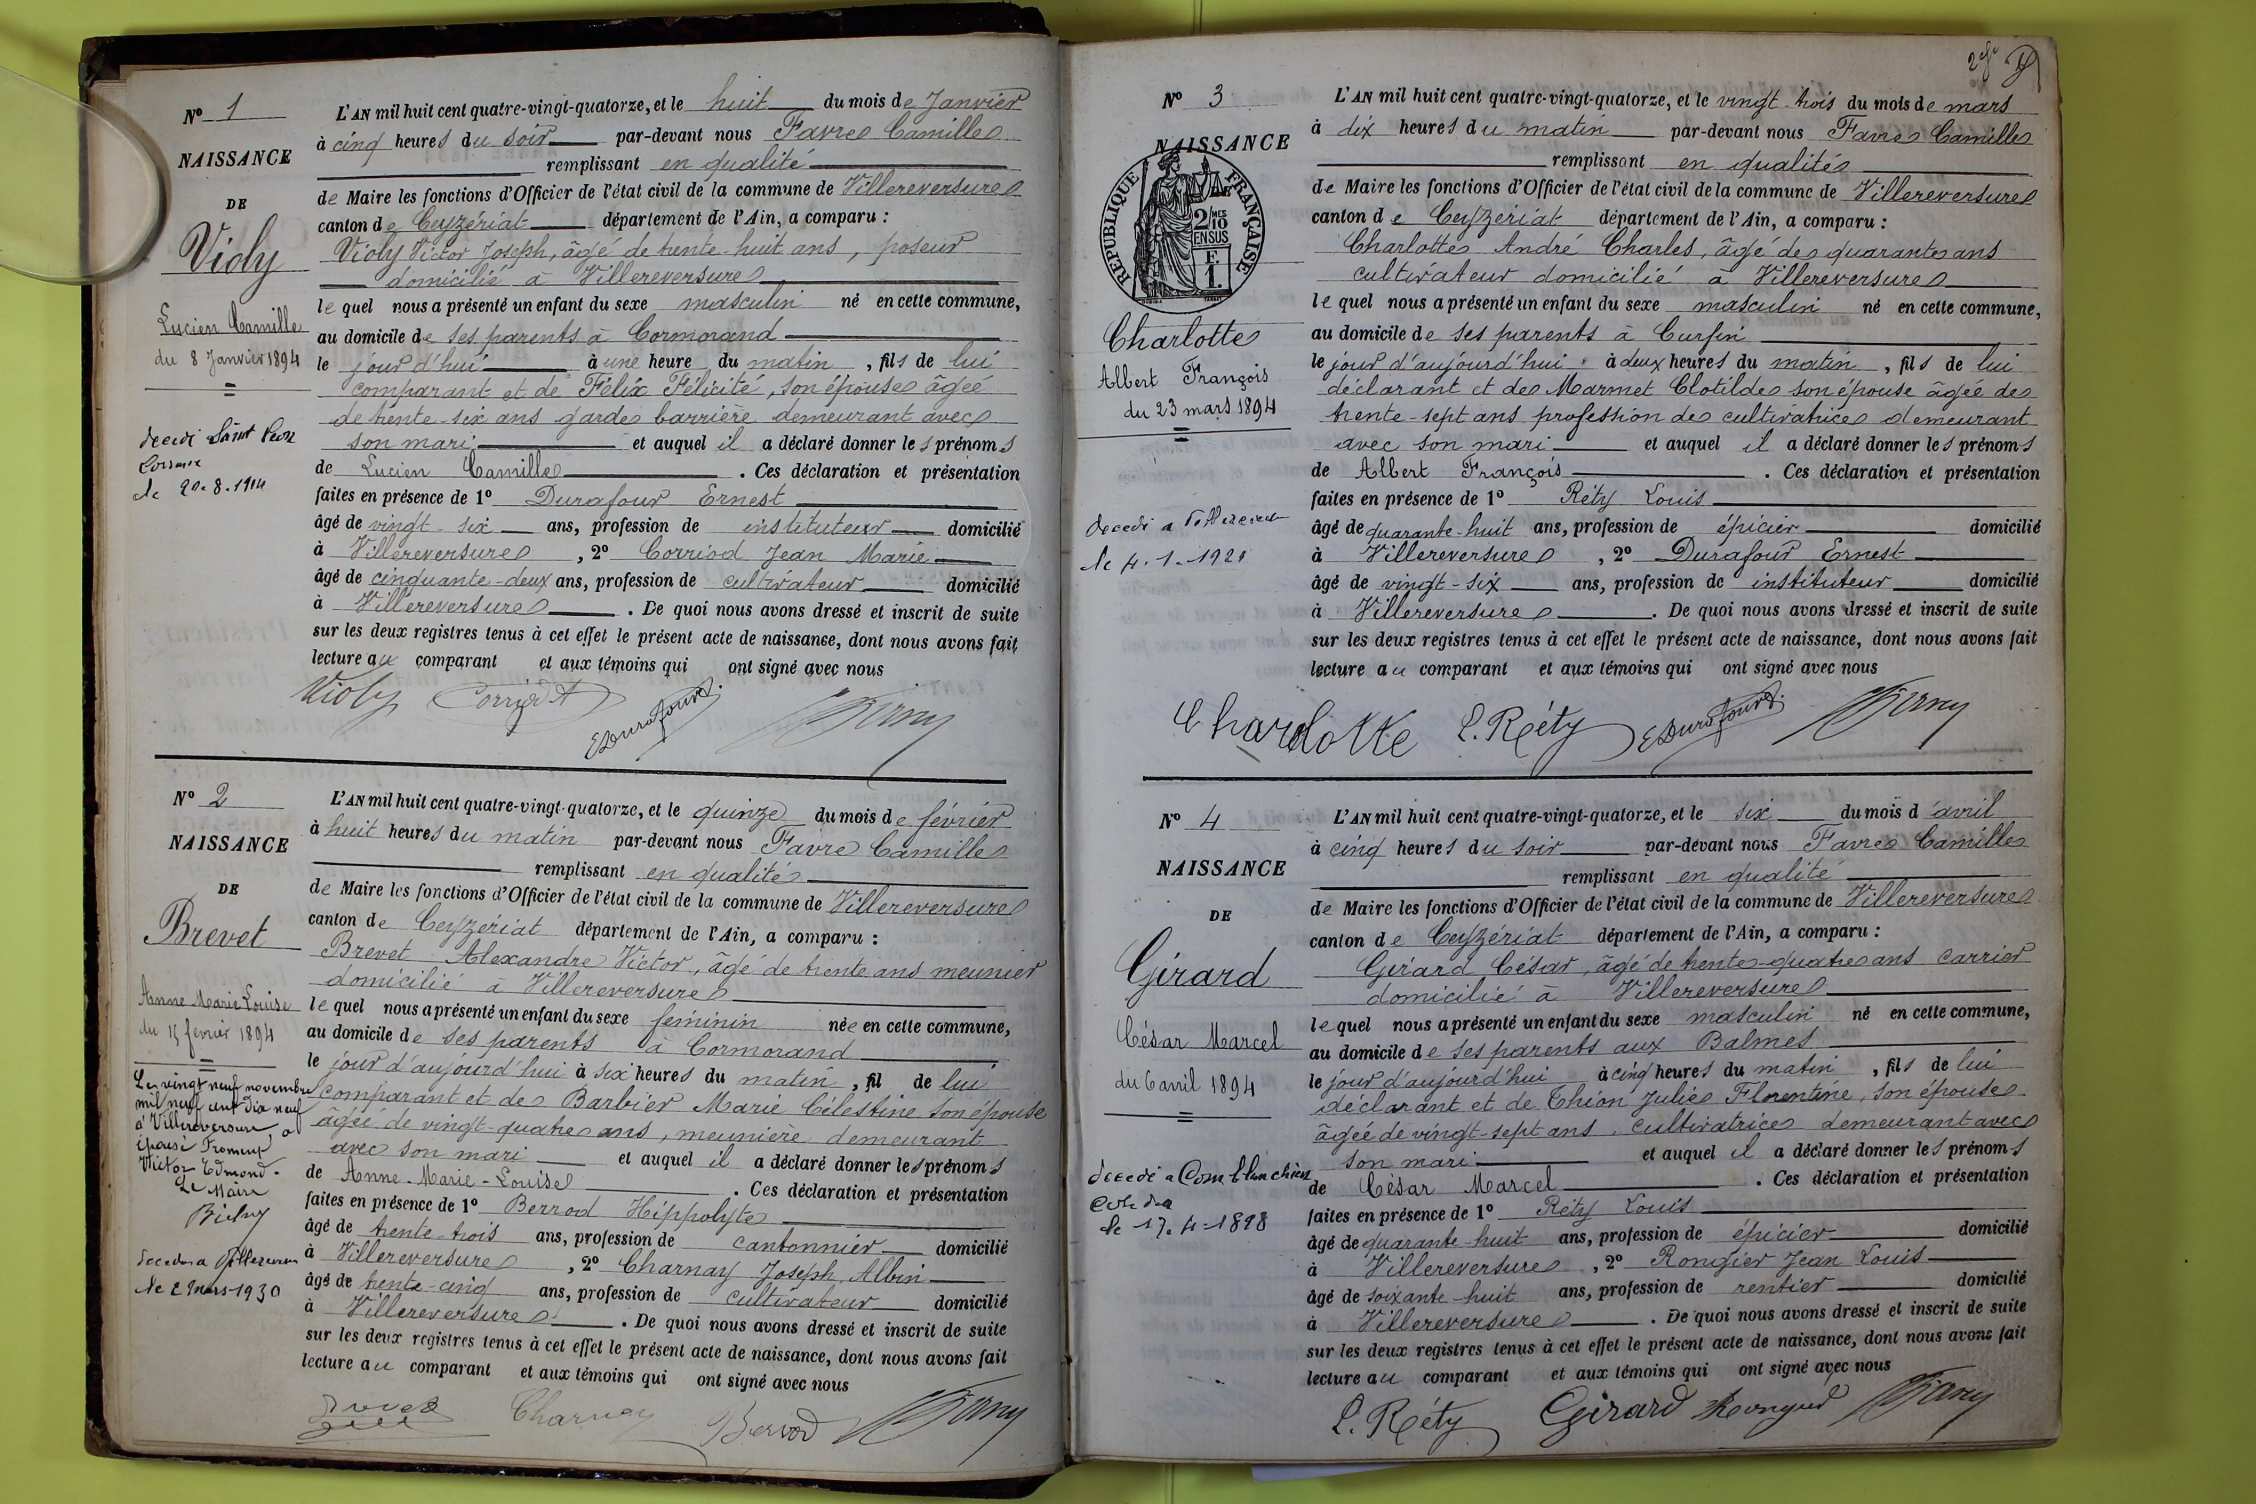 N° 1
NAISSANCE
DE
Violy
Lucien Camille
du 8 Janvier 1894
décédé Saint Léon
le 20.8.1914
L'AN mil huit cent quatre-vingt-quatorze, et le huit du mois de Janvier
à cinq heures du soir par-devant nous Favre Camille
remplissant en qualité
de Maire les fonctions d'Officier de l'état civil de la commune de Villereversure
canton de Ceyzériat département de l'Ain, a comparu :
Violy Victor Joseph, âgé de trente-huit ans, poseur
domicilié à Villereversure
lequel nous a présenté un enfant du sexe masculin né en cette commune,
au domicile de ses parents à Cormorand
le jour d'hui à une heure du matin, fils de lui
comparant et de Félix Félicité, son épouse âgée
de trente-six ans garde barrière demeurant avec
son mari et auquel il a déclaré donner les prénoms
de Lucien Camille. Ces déclaration et présentation
faites en présence de 1° Durafour Ernest
âgé de vingt-six ans, profession de instituteur domicilié
à Villereversure, 2° Corriod Jean Marie
âgé de cinquante-deux ans, profession de cultivateur domicilié
à Villereversure. De quoi nous avons dressé et inscrit de suite
sur les deux registres tenus à cet effet le présent acte de naissance, dont nous avons fait
lecture au comparant et aux témoins qui ont signé avec nous
Violy Corriod EDurafour
N° 2
NAISSANCE
DE
Brevet
Anne Marie Louise
du 15 fevrier 1894
Le vingt neuf novembre
mil neuf cent dix neuf
à Villereversure a
épousé
Victor Edmond.
Le Maire
le 2 mars 1930
L'AN mil huit cent quatre-vingt-quatorze, et le quinze du mois de février
à huit heures du matin par-devant nous Favre Camille
remplissant en qualité
de Maire les fonctions d'Officier de l'état civil de la commune de Villereversure
canton de Ceyzériat département de l'Ain, a comparu :
Brevet Alexandre Victor, âgé de trente ans meunier
domicilié à Villereversure
lequel nous a présenté un enfant du sexe féminin née en cette commune,
au domicile de ses parents à Cormorand
le jour d'aujourd'hui à six heures du matin, fil de lui
comparant et de Barbier Marie Célestine son épouse
âgée de vingt-quatre ans, meunière demeurant
avec son mari et auquel il a déclaré donner les prénoms
de Anne-Marie-Louise. Ces déclaration et présentation
faites en présence de 1° Berrod Hippolyte
âgé de trente-trois ans, profession de cantonnier domicilié
à Villereversure, 2° Charnay Joseph Albin
âgé de trente-cinq ans, profession de cultivateur domicilié
à Villereversure. De quoi nous avons dressé et inscrit de suite
sur les deux registres tenus à cet effet le présent acte de naissance, dont nous avons fait
lecture au comparant et aux témoins qui ont signé avec nous
Charnay Berrod
N° 3
NAISSANCE
RÉPUBLIQUE FRANÇAISE
2/10 MES
EN SUS
F.
1.
Charlotte
Albert François
du 23 mars 1894
décédé a
le 4.1.1921
L'AN mil huit cent quatre-vingt-quatorze, et le vingt-trois du mois de mars
à dix heures du matin par-devant nous Favre Camille
remplissant en qualité
de Maire les fonctions d'Officier de l'état civil de la commune de Villereversure
canton de Ceyzériat département de l'Ain, a comparu :
Charlotte André Charles, âgé de quarante ans
cultivateur domicilié à Villereversure
lequel nous a présenté un enfant du sexe masculin né en cette commune,
au domicile de ses parents à Curfin
le jour d'aujourd'hui à deux heures du matin, fils de lui
déclarant et de Marmet Clotilde son épouse âgée de
trente-sept ans profession de cultivatrice demeurant
avec son mari et auquel il a déclaré donner les prénoms
de Albert François. Ces déclaration et présentation
faites en présence de 1° Réty Louis
âgé de quarante-huit ans, profession de épicier domicilié
à Villereversure, 2° Durafour Ernest
âgé de vingt-six ans, profession de instituteur domicilié
à Villereversure. De quoi nous avons dressé et inscrit de suite
sur les deux registres tenus à cet effet le présent acte de naissance, dont nous avons fait
lecture au comparant et aux témoins qui ont signé avec nous
Charlotte L. Réty EDurafour
N° 4
NAISSANCE
DE
Girard
César Marcel
du 6 avril 1894
décédé a Comblanchien
le 17.4.1898
L'AN mil huit cent quatre-vingt-quatorze, et le six du mois d'avril
à cinq heures du soir par-devant nous Favre Camille
remplissant en qualité
de Maire les fonctions d'Officier de l'état civil de la commune de Villereversure
canton de Ceyzériat département de l'Ain, a comparu :
Girard César, âgé de trente-quatre ans carrier
domicilié à Villereversure
lequel nous a présenté un enfant du sexe masculin né en cette commune,
au domicile de ses parents aux Balmes
le jour d'aujourd'hui à cinq heures du matin, fils de lui
déclarant et de Thion Julie Florentine, son épouse
âgée de vingt-sept ans. cultivatrice demeurant avec
son mari et auquel il a déclaré donner les prénoms
de César Marcel. Ces déclaration et présentation
faites en présence de 1° Réty Louis
âgé de quarante-huit ans, profession de épicier domicilié
à Villereversure, 2° Rongier Jean Louis
âgé de soixante-huit ans, profession de rentier domicilié
à Villereversure. De quoi nous avons dressé et inscrit de suite
sur les deux registres tenus à cet effet le présent acte de naissance, dont nous avons fait
lecture au comparant et aux témoins qui ont signé avec nous
L. Réty Girard